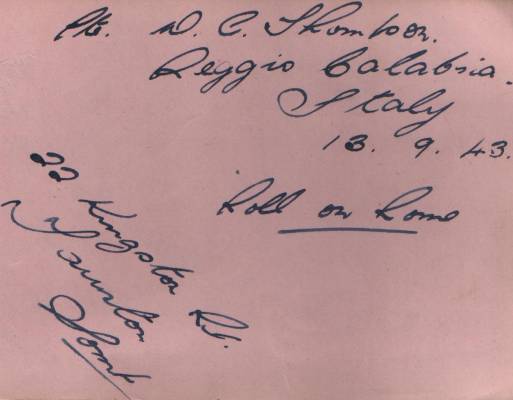 Pte. D. C. Thompson.
Reggio Calabria.
Italy
13. 9. 43.
Roll on Rome
22 Kingston Rd.
Taunton
Somt